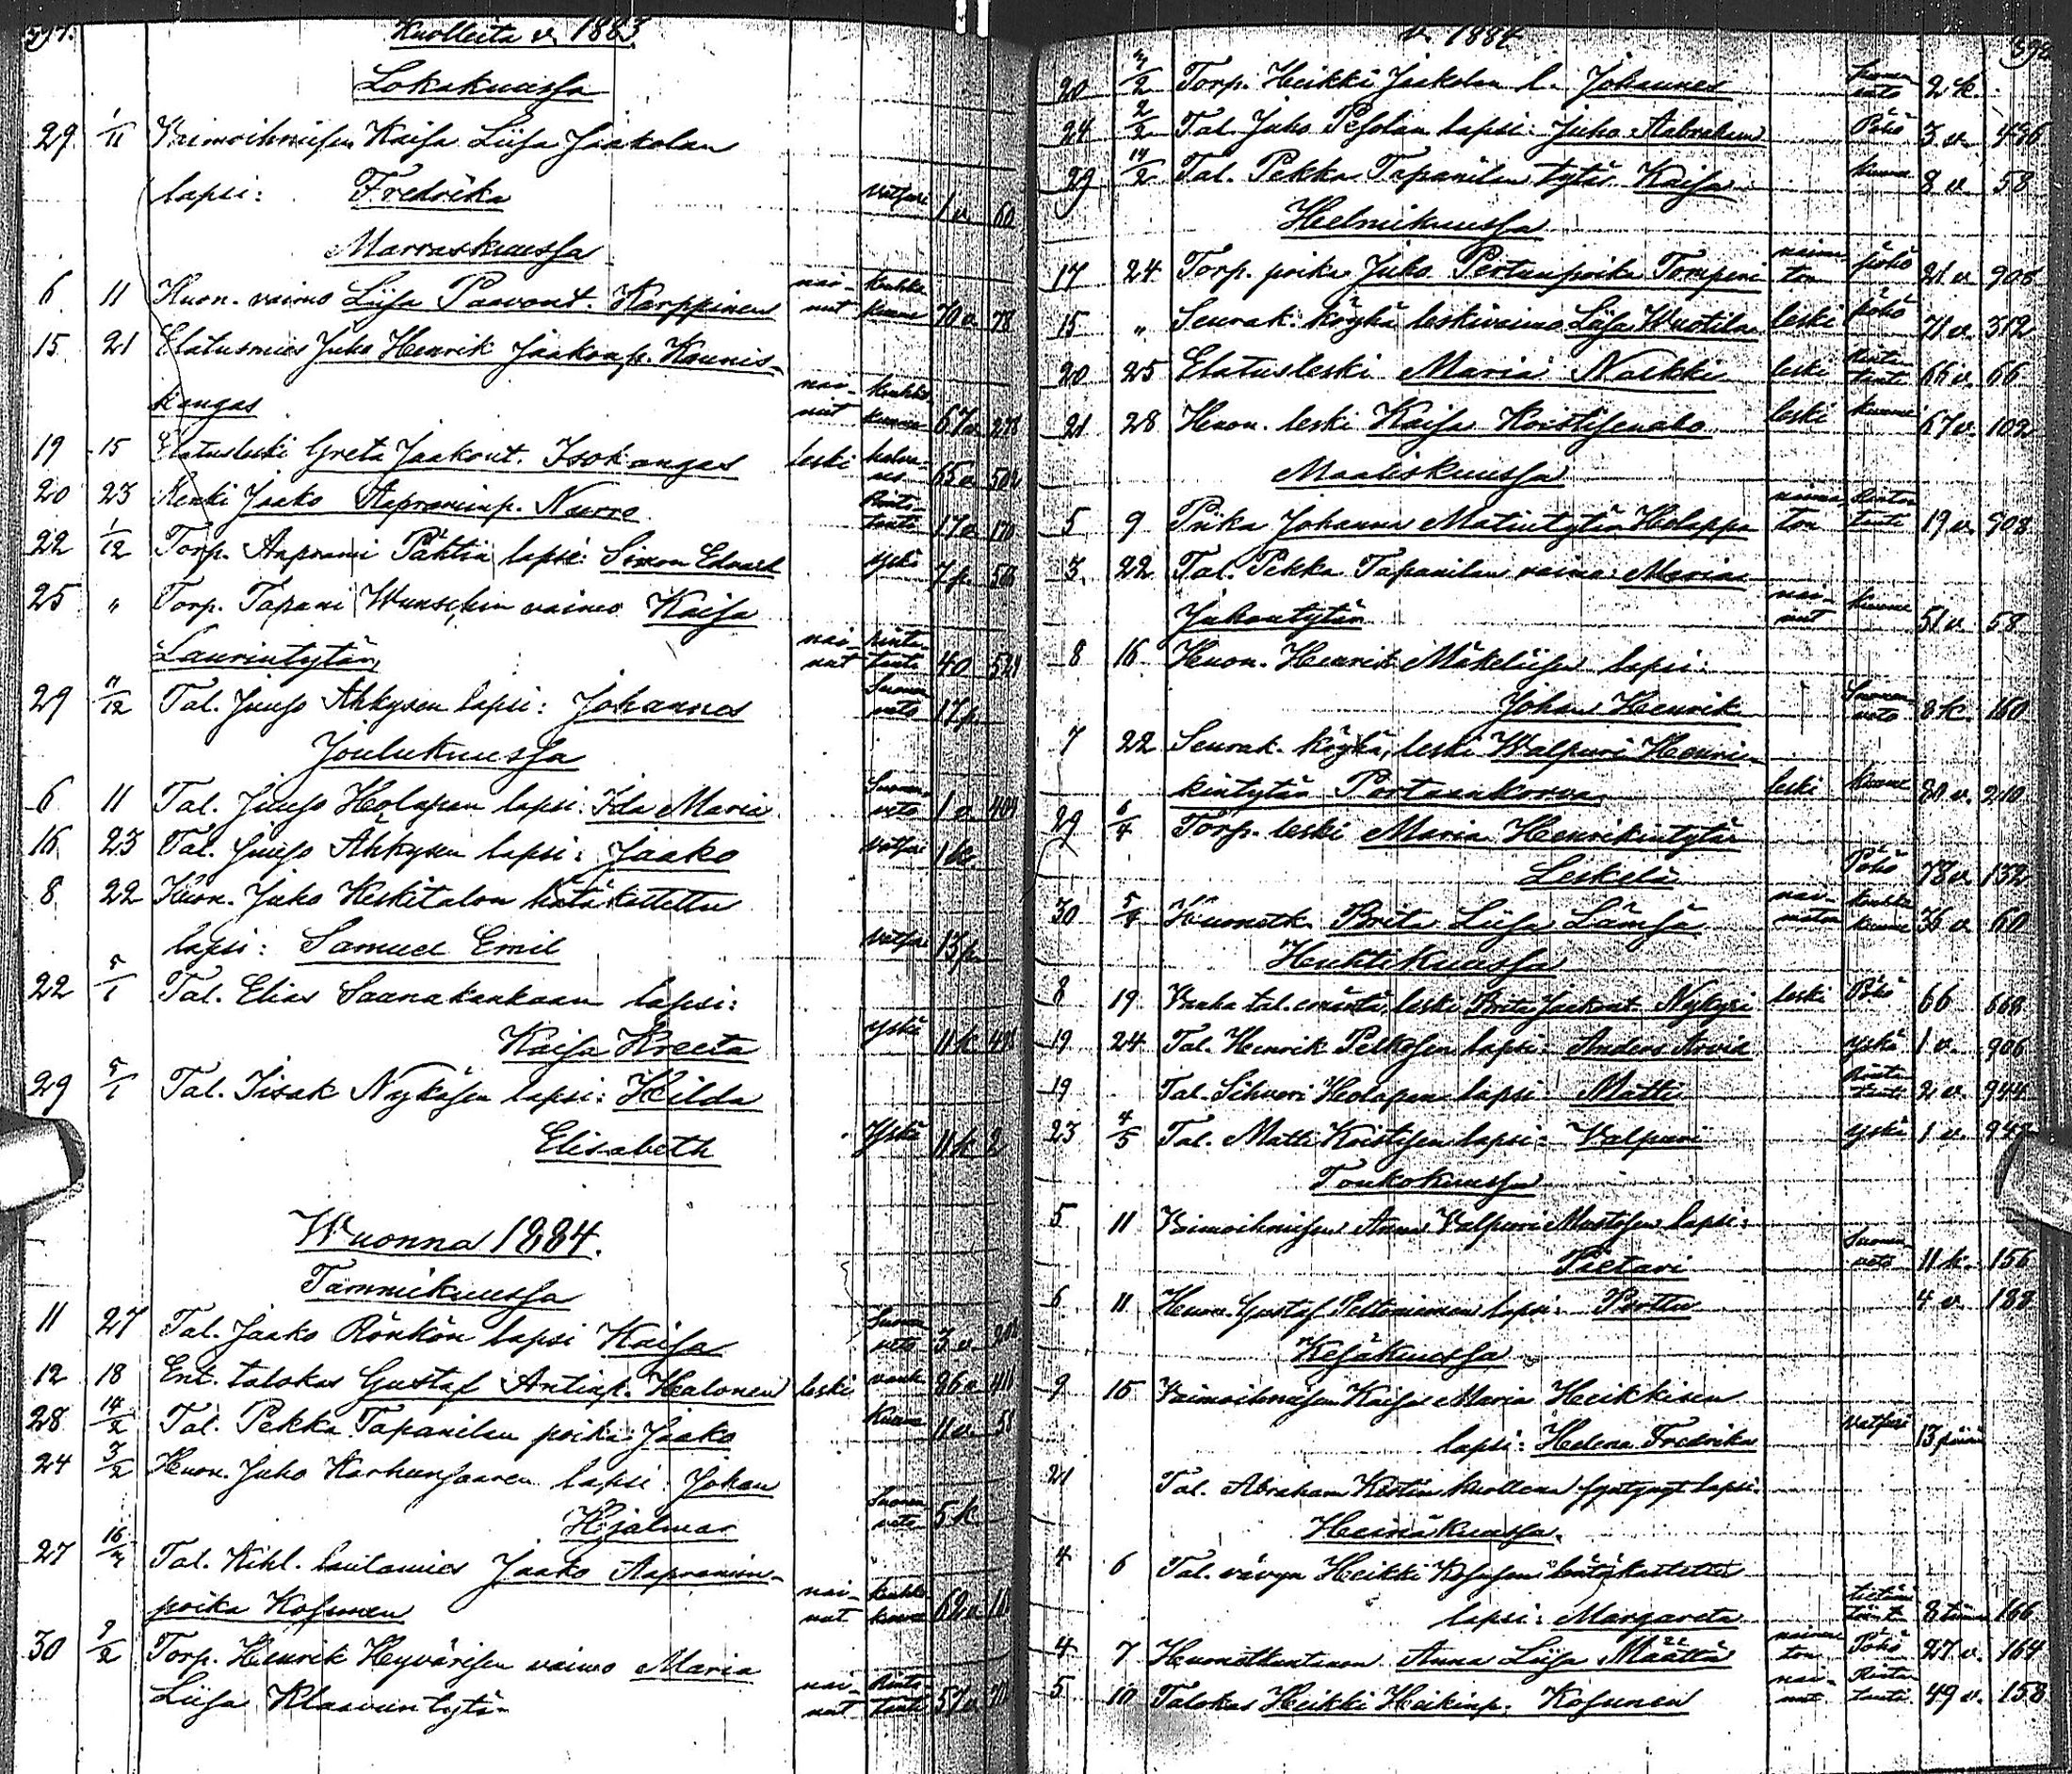 Kuolleita v. 1883
Lokakuussa
29 1/11 Vaimoihmisen Kaisa Liisa Jaakolan
lapsi: Fredrika vatsuri 1 v. 60
Marraskuussa
6 11 Huon. vaimo Liisa Paavont. Karppinen nai- nut keuhko kuume 70 v. 78
15 21 Elatusmies Juho Henrik Jaakonp. Kaunis-
kangas nai- nut keuhko kuume 67 v.
19 15 Elatusleski Greta Jaakont. Isokangas leski 65 v.
20 23 Renki Jaako Aapraminp. Nurro Rinta- tauti 17 v. 170
22 1/12 Torp. Aaprami Pähtin lapsi: Simon Edvard yskä 7 p.
25 " Torp. Tapani vaimo Kaisa
Laurintytär nai- nut rinta- tauti 40
29 11/12 Tal. Juuso Ahkysen lapsi: Johannes Suonen veto 17 p.
Joulukuussa
6 11 Tal. Juuso Holapan lapsi: Ida Maria Suonen veto 1 v.
16 23 Tal. Juuso Ahkysen lapsi: Jaako vatsuri 1 k.
8 22 Huon. Juho Keskitalon hätäkastettu
lapsi: Samuel Emil vatsuri 13 p.
22 5/1 Tal. Elias Saarnakankaan lapsi:
Kaisa Kreeta yskä 11 k
29 5/1 Tal. Iisak Nykäsen lapsi: Hilda
Elisabeth Yskä 11 k 2
Wuonna 1884.
Tammikuussa
11 27 Tal. Jaako Rönkön lapsi Kaisa Suonen veto 3 v.
12 18 Ent. talokas Gustaf Antinp. Halonen leski vanh. 86 v.
28 14/2 Tal. Pekka Tapanilan poika: Jaako Kuume 11 v. 58
24 3/2 Huon. Juho Karhunsaaren lapsi: Johan
Hjalmar Suonen veto 5 k
27 Tal. Kihl. lautamies Jaako Aapramin-
poika Kosunen nai- nut keuhko kuume
30 9/2 Torp. Henrik Hyvärisen vaimo Maria
Liisa Klaavuntytär nai- nut Rinta tauti 57 v.
v. 1884
20 3/2 Torp. Heikki Jaakolan l. Johannes Suonen veto 2 k.
24 2/2 Tal. Juho Pesolan lapsi: Juho Aabraham Pöhö 3 v.
29 14/2 Tal. Pekka Tapanilan tytär Kaisa kuume 8 v. 58
Helmikuussa
17 24 Torp. poika Juho Pertunpoika Tomperi naima ton pöhö 21 v. 905
15 " Seurak. köyhä leskivaimo Liisa Wuotila leski pöhö 71 v. 312
20 25 Elatusleski Maria Nälkki leski Rinta tauti 66 v. 66
21 28 Huon. leski Kaisa Koistisenaho leski kuume 67 v. 102
Maaliskuussa
5 9 Piika Johanna Matintytär Holappa naima ton Rinta tauti 19 v. 908
3 22 Tal. Pekka Tapanilan vaimo: Maria
Juhontytär nai- nut kuume 51 v. 58
8 16 Huon. Henrik Mäkeläisen lapsi:
Johan Henrik Suonen veto 8 k. 160
7 22 Seurak. köyhä, leski Walpuri Henri-
kintytär Portaankorva leski kuume 80 v. 210
29 6/4 Torp. leski Maria Henrikintytär
Leskelä Pöhö 78 v. 132
30 5/4 Huonetk. Brita Liisa Lämsä nai- maton keuhko kuume 36 v. 60
Huhtikuussa
8 19 Vanha tal. emäntä, leski Brita Jaakont. Nykyri leski Pöhö 66 668
19 24 Tal. Henrik Pelkosen lapsi: Anders Arvid yskä 1 v. 906
19 Tal. Sihveri Holapan lapsi: Matti Rinta tauti 2 v. 944
23 4/5 Tal. Matti Koistisen lapsi: Valpuri yskä 1 v.
Toukokuussa
5 11 Vaimoihmisen Anna Valpuri Mustosen lapsi:
Pietari Suonen veto 11 k. 156
6 11 Huon. Gustaf Peltoniemen lapsi: Perttu 4 v. 188
Kesäkuussa
9 15 Vaimoihmisen Kaisa Maria Heikkisen
lapsi: Helena Fredrika vatsuri 13 päivä
21 Tal. Abraham Kestin kuollena syntynyt lapsi.
Heinäkuussa.
4 6 Tal. vävyn Heikki Kosusen hätäkastettu
lapsi: Margareta 8 tiima 166
4 7 Huonetkuntanen Anna Liisa Määttä naima ton Pöhö 27 v. 164
5 10 Talokas Heikki Heikinp. Kosunen nai- nut Rinta tauti 49 v. 158